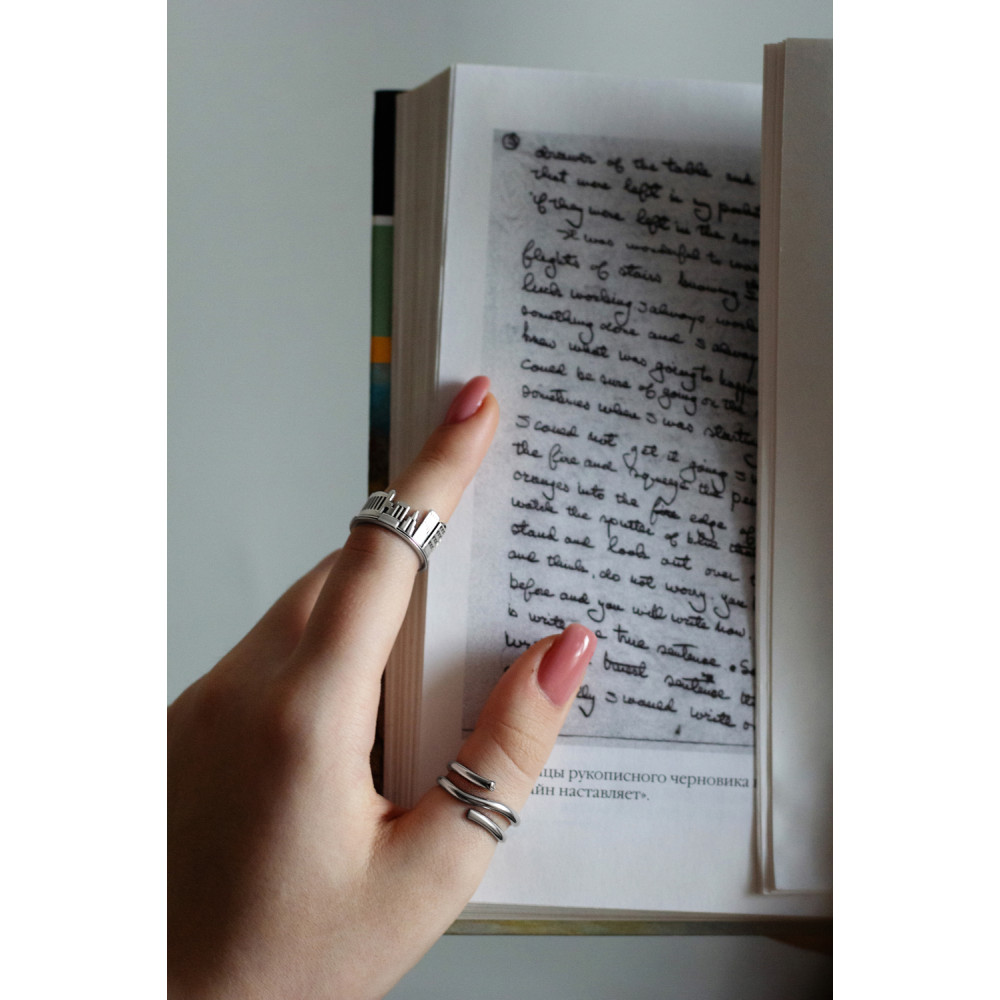 3
drawer of the table and
that were left in my pocket
if they were left in the room
It was wonderful to
flights of stairs knowing
luck working I always work
something done and I always
knew what was going to happ
could be sure of going on the
sometimes when I was startin
I could not get it going I
the fire and squeeze the pee
oranges into the edge of
watch the sputter of blue that
stand and look out over
and think, do not worry. you
before and you will write now.
is write a true sentence. So
sentence th
ly I would write o
цы рукописного черновика
йн наставляет».